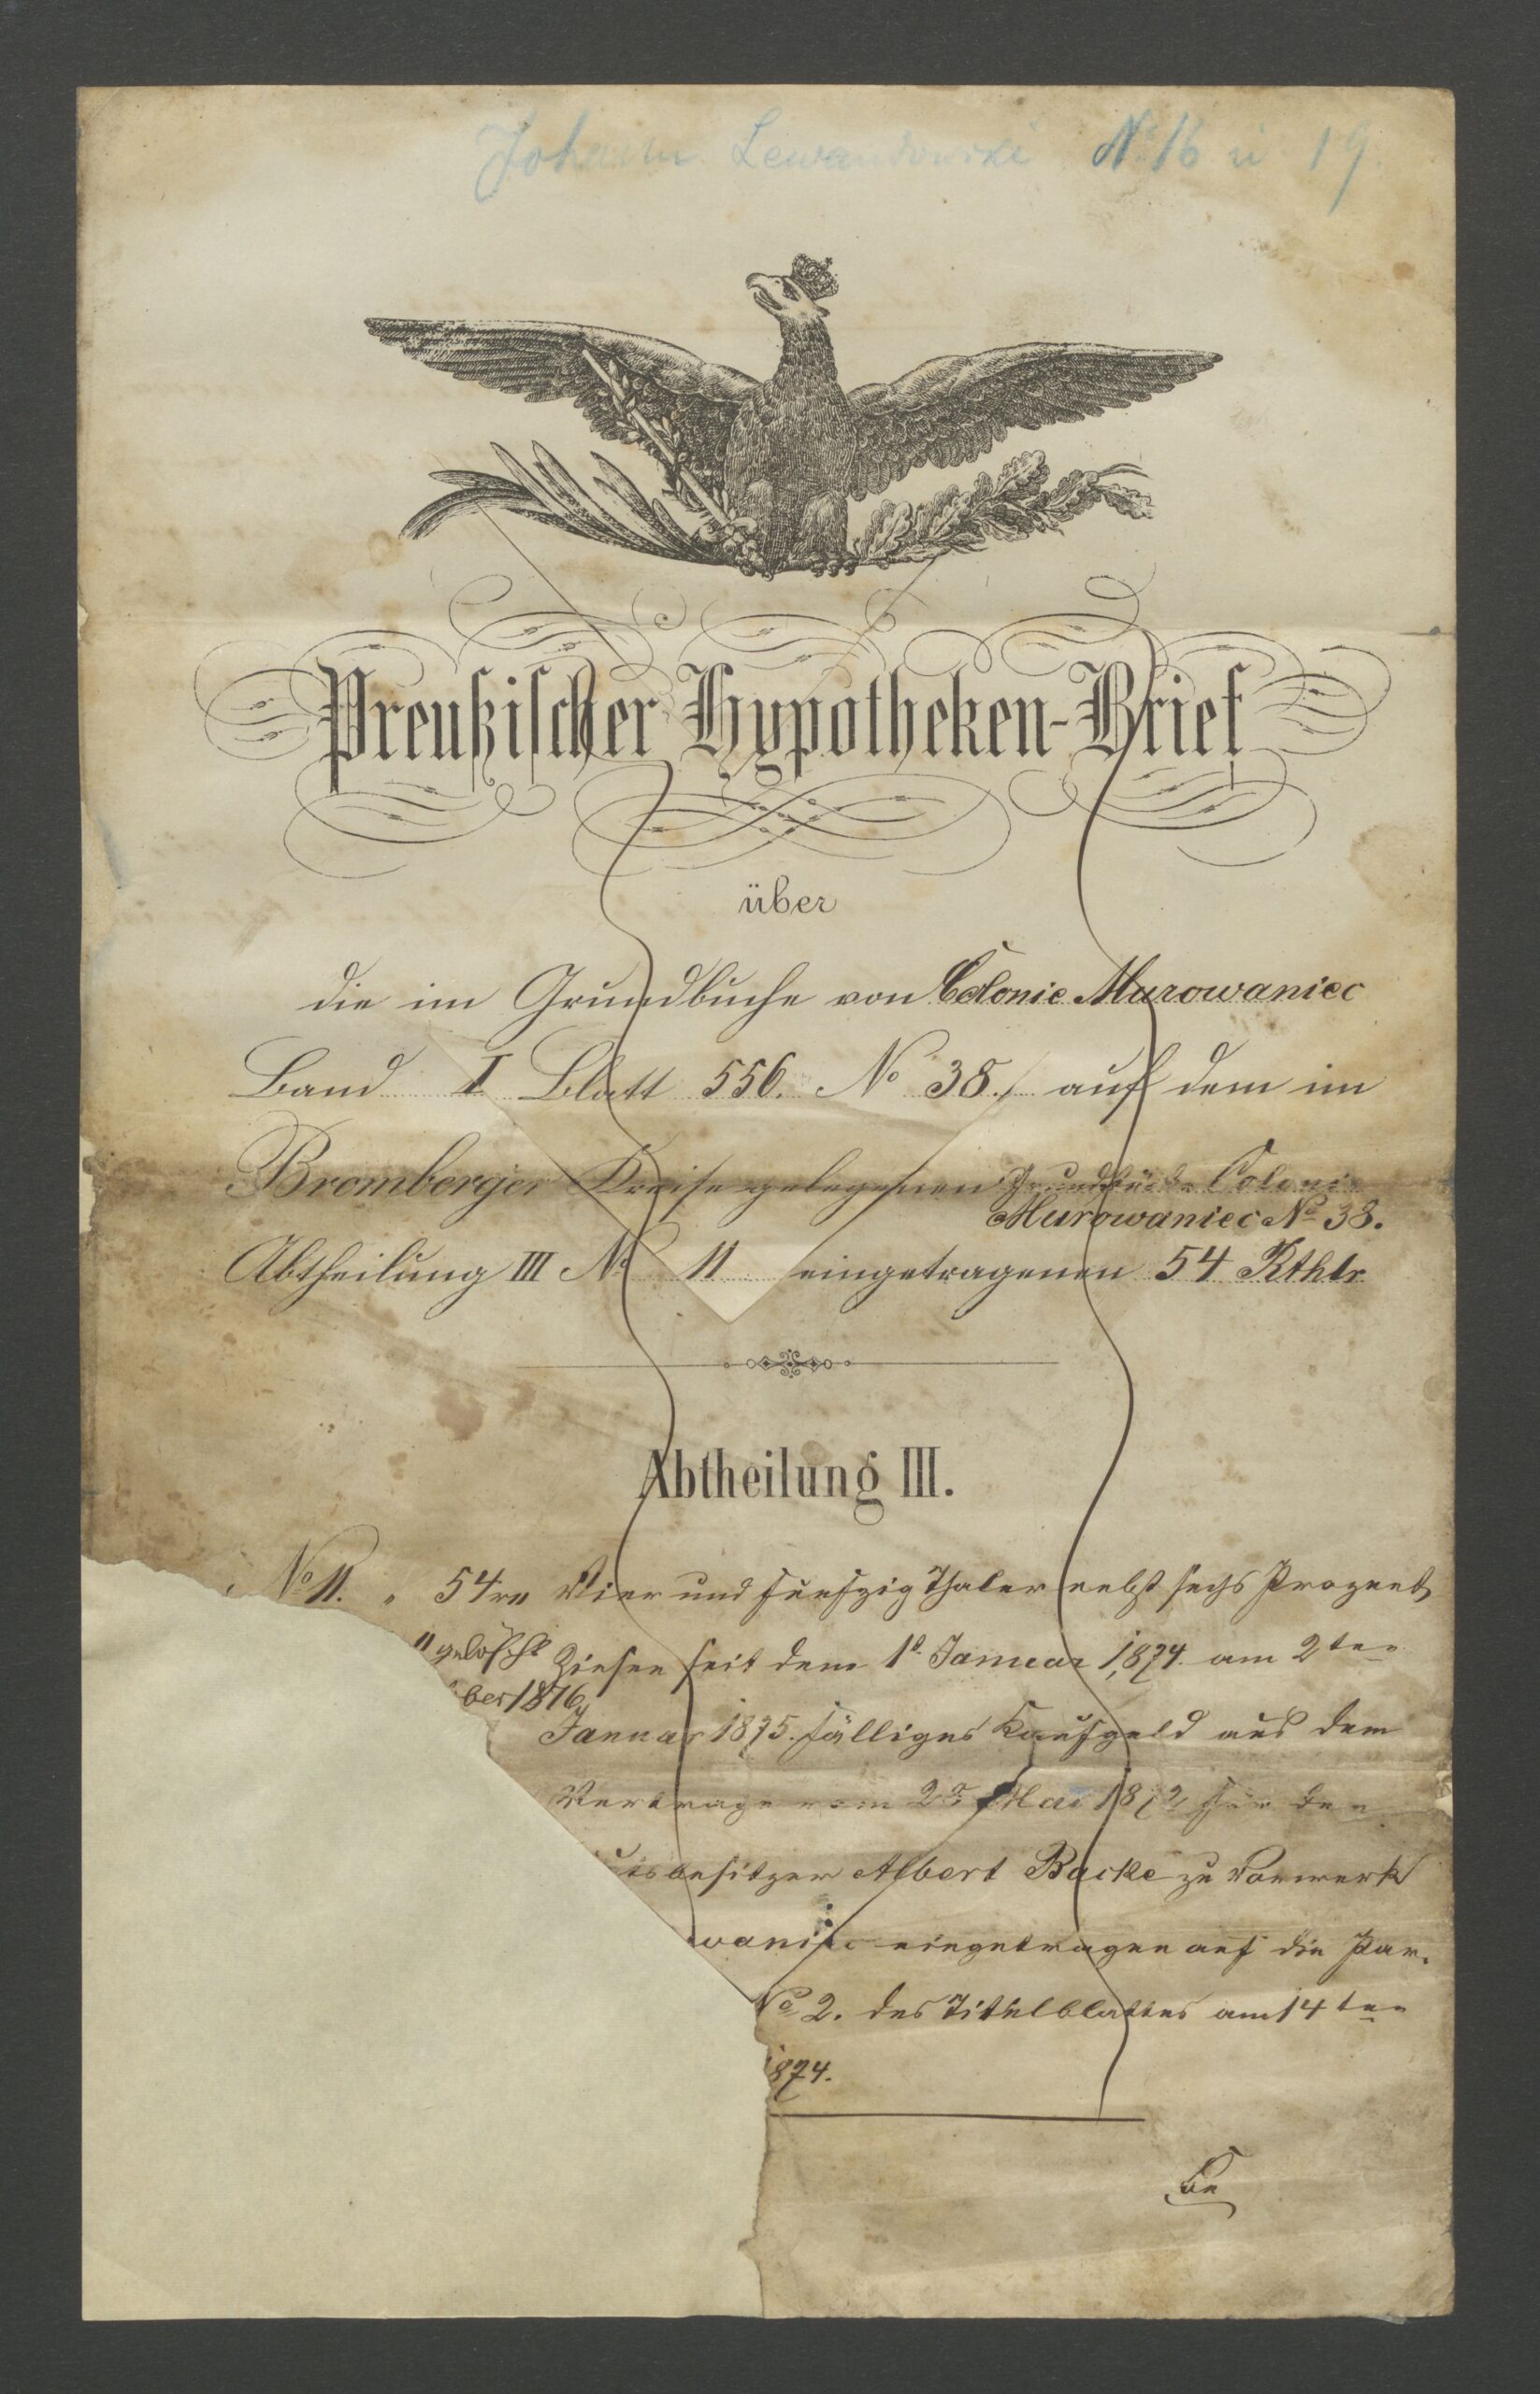 Johann Lewandowski № 16 u 19.
Preußischer Hypotheken-Brief
über
die im Grundbuche von Colonie Murowaniec
Band I Blatt 556. No 38. auf dem im
Bromberger Kreise gelegenen Grundstücke Colonie
Murowaniec No 38.
Abtheilung III No 11 eingetragenen 54 Rthlr
Abtheilung III.
No 11. 54 Vier und funfzig Thaler nebst sechs Prozent
gelöscht Zinsen seit dem 1t Januar 1874 am 2ten
ber 1876
Januar 1875. fälliges Kaufgeld aus dem
Vertrage vom Mai 1872 für den
besitzer Albert Backe zu Vorwerk
waniec eingetragen auf die Par.
No 2. des Titelblattes am 14ten
1874.